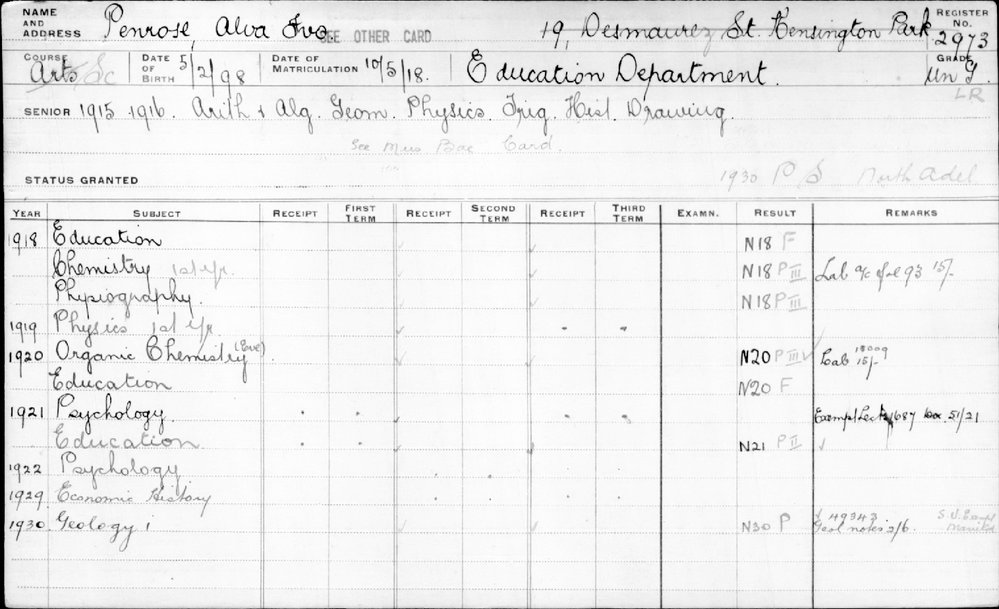 NAME AND ADDRESS Penrose, Alva Ivo SEE OTHER CARD 19, Desmaurez St. Kensington Park REGISTER No. 2973
COURSE Arts Sc DATE OF BIRTH 5/2/98 DATE OF MATRICULATION 10/5/18. Education Department GRADE Un G
LR
SENIOR 1915 + 1916. Arith + Alg. Geom. Physics. Trig. Hist. Drawing.
See Mus Bac Card.
STATUS GRANTED 1930 P S North Adel
YEAR SUBJECT RECEIPT FIRST TERM RECEIPT SECOND TERM RECEIPT THIRD TERM EXAMN. RESULT REMARKS
1918 Education N18 F
Chemistry 1st yr. N18 P III Lab a/c 93 15/-
Physiography. N18 P III
1919 Physics 1st yr
1920 Organic Chemistry (Eve) N20 P III ✓ Lab 18009 15/-
Education N20 F
1921 Psychology. Exemp/Lect 1687 51/21
Education N21 P II ✓
1922 Psychology
1929 Economic History
1930 Geology i N30 P 49343 Geol notes 2/6.